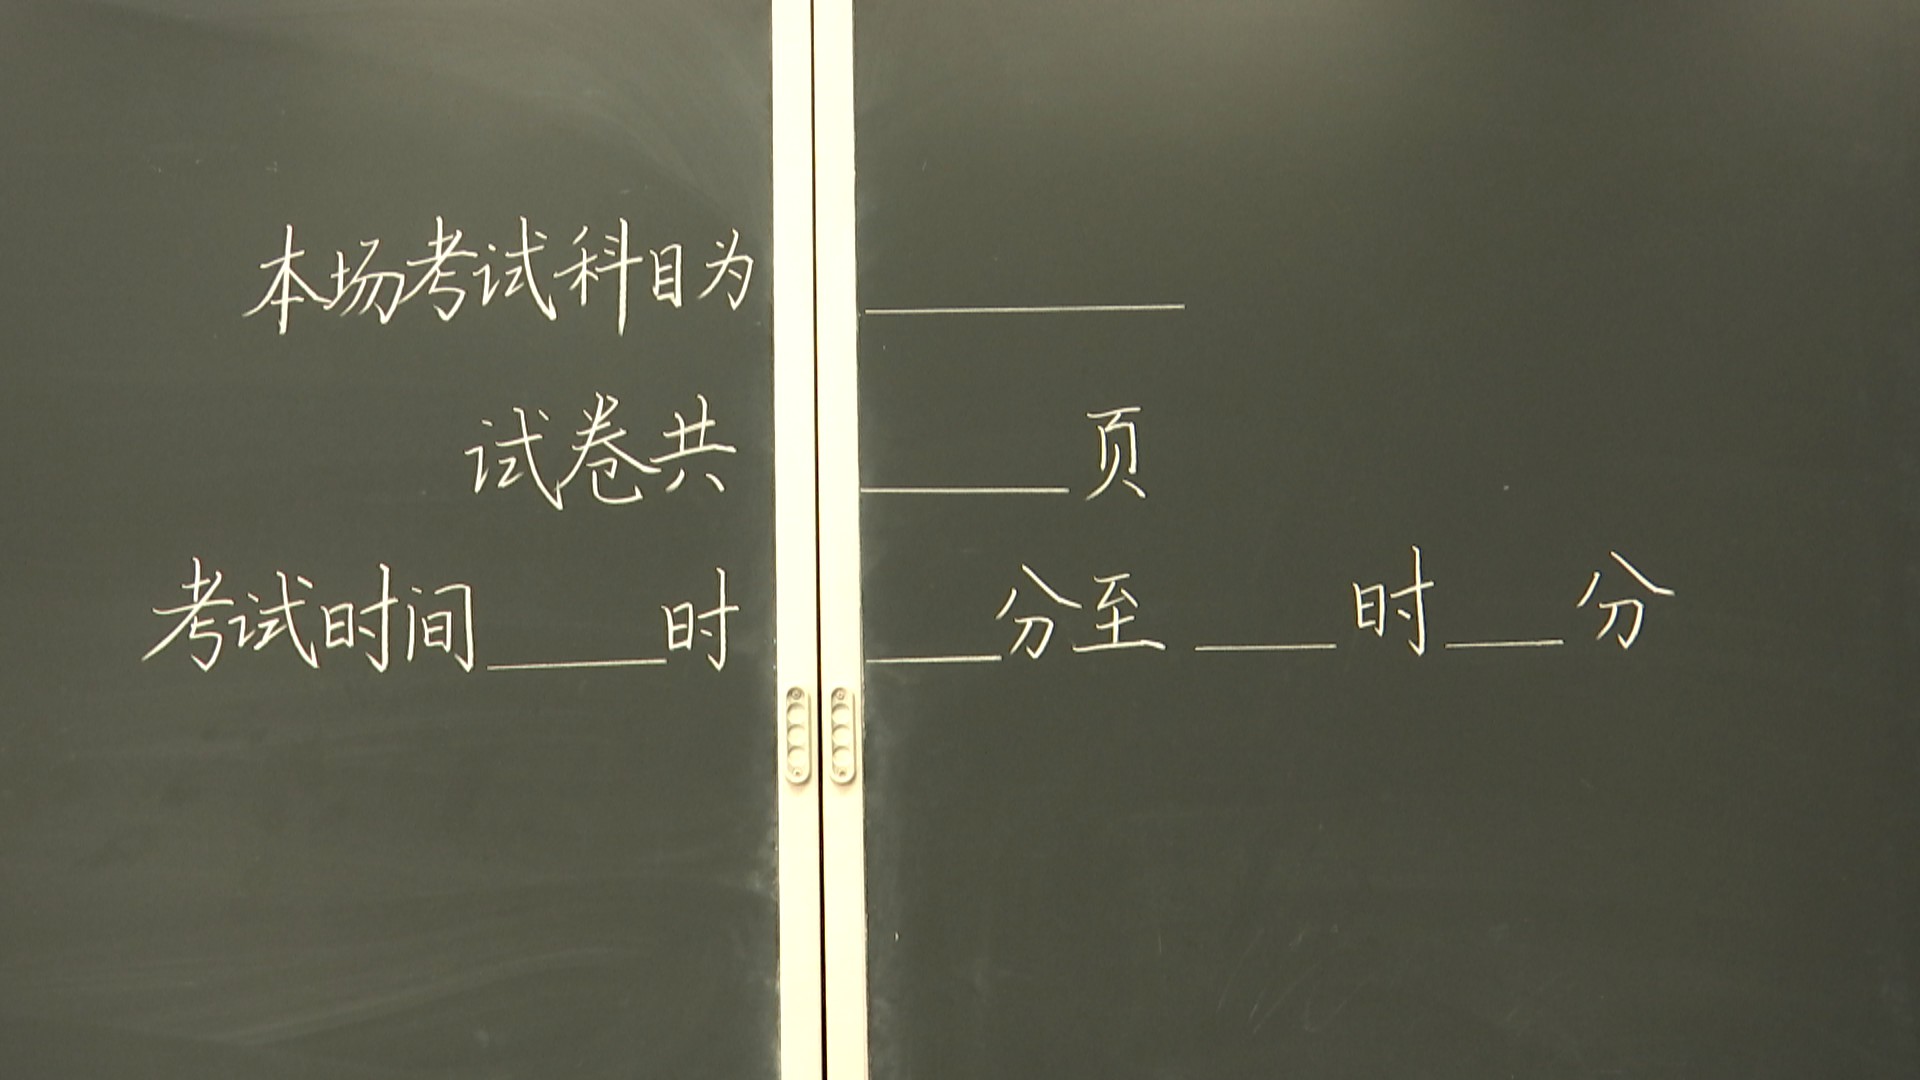 本场考试科目为________
试卷共______页
考试时间_____时____分至____时___分